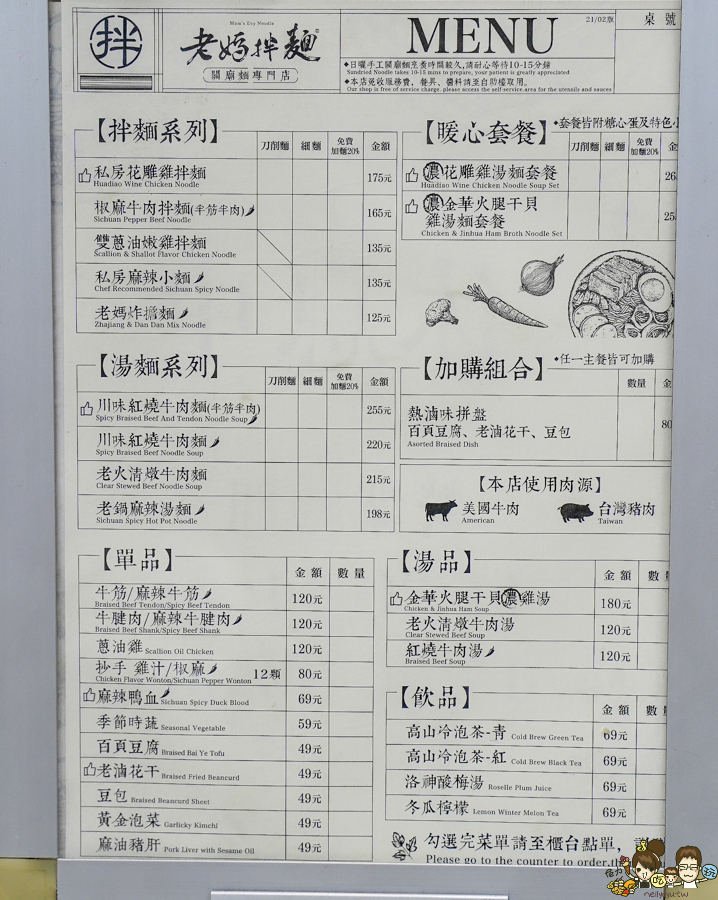 拌
Mom's Dry Noodle
老媽拌麵
關廟麵專門店
MENU
21/02版
桌號
◆日曬手工關廟麵烹煮時間較久,請耐心等待10-15分鐘
Sundried Noodle takes 10-15 mins to prepare, your patient is greatly appreciated
◆本店免收服務費, 餐具、醬料請至自助檯取用。
Our shop is free of service charge, please access the self service area for the utensils and sauces
【拌麵系列】
刀削麵 細麵 免費加麵20% 金額
私房花雕雞拌麵 175元
Huadiao Wine Chicken Noodle
椒麻牛肉拌麵(半筋半肉) 165元
Sichuan Pepper Beef Noodle
雙蔥油嫩雞拌麵 135元
Scallion & Shallot Flavor Chicken Noodle
私房麻辣小麵 135元
Chef Recommended Sichuan Spicy Noodle
老媽炸擔麵 125元
Zhajiang & Dan Dan Mix Noodle
【暖心套餐】
◆套餐皆附糖心蛋及特色小
刀削麵 細麵 免費加麵20% 金
濃花雕雞湯麵套餐 26
Huadiao Wine Chicken Noodle Soup Set
濃金華火腿干貝
雞湯麵套餐 25
Chicken & Jinhua Ham Broth Noodle Set
【湯麵系列】
刀削麵 細麵 免費加麵20% 金額
川味紅燒牛肉麵(半筋半肉) 255元
Spicy Braised Beef And Tendon Noodle Soup
川味紅燒牛肉麵 220元
Spicy Braised Beef Noodle Soup
老火清燉牛肉麵 215元
Clear Stewed Beef Noodle Soup
老鍋麻辣湯麵 198元
Sichuan Spicy Hot Pot Noodle
【加購組合】
◆任一主餐皆可加購
數量 金
熱滷味拼盤
百頁豆腐、老滷花干、豆包 80
Asorted Braised Dish
【本店使用肉源】
美國牛肉 台灣豬肉
American Taiwan
【單品】
金額 數量
牛筋/麻辣牛筋 120元
Braised Beef Tendon/Spicy Beef Tendon
牛腱肉/麻辣牛腱肉 120元
Braised Beef Shank/Spicy Beef Shank
蔥油雞 Scallion Oil Chicken 120元
抄手 雞汁/椒麻 12顆 80元
Chicken Flavor Wonton/Sichuan Pepper Wonton
麻辣鴨血 Sichuan Spicy Duck Blood 69元
季節時蔬 Seasonal Vegetable 59元
百頁豆腐 Braised Bai Ye Tofu 49元
老滷花干 Braised Fried Beancurd 49元
豆包 Braised Beancurd Sheet 49元
黃金泡菜 Garlicky Kimchi 49元
麻油豬肝 Pork Liver with Sesame Oil 49元
【湯品】
金額 數
金華火腿干貝濃雞湯 180元
Chicken & Jinhua Ham Soup
老火清燉牛肉湯 120元
Clear Stewed Beef Soup
紅燒牛肉湯 120元
Braised Beef Soup
【飲品】
金額 數
高山冷泡茶-青 Cold Brew Green Tea 69元
高山冷泡茶-紅 Cold Brew Black Tea 69元
洛神酸梅湯 Roselle Plum Juice 69元
冬瓜檸檬 Lemon Winter Melon Tea 69元
勾選完菜單請至櫃台點單,
Please go to the counter to order,th